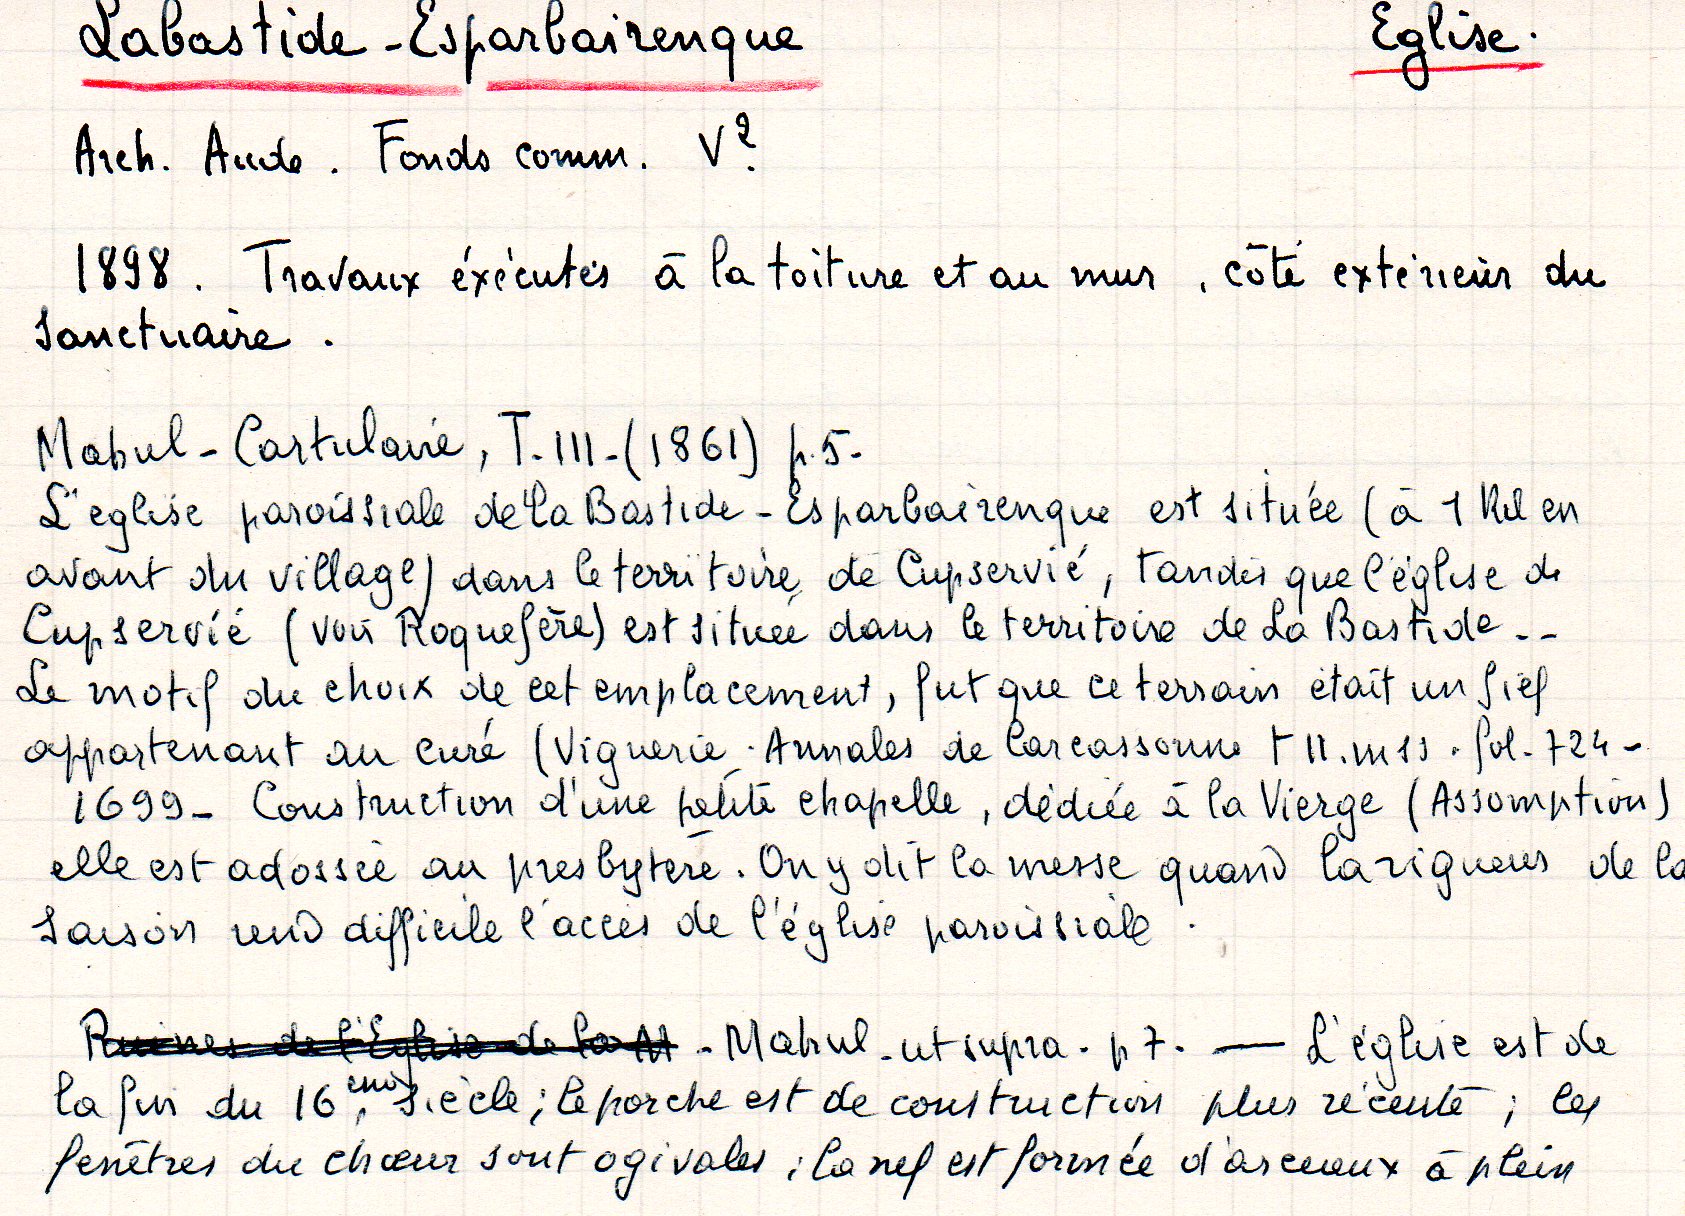 Labastide-Esparbairenque Eglise.
Arch. Aude. Fonds comm. V?
1898. Travaux éxécutés à la toiture et au mur, côté extérieur du
Sanctuaire.
Mahul - Cartulaire, T. III - (1861) p. 5 -
L'église paroissiale de La Bastide - Esparbairenque est située (à 1 Kil en
avant du village) dans le territoire de Cupservié, tandis que l'église de
Cupservié (voir Roquefère) est située dans le territoire de La Bastide --
Le motif du choix de cet emplacement, fut que ce terrain était un fief
appartenant au curé (Viguerie. Annales de Carcassonne t II. mss. fol. 724 -
1699 - Construction d'une petite chapelle, dédiée à la Vierge (Assomption)
elle est adossée au presbytère. On y dit la messe quand la rigueur de la
Saison rend difficile l'accès de l'église paroissiale.
Ruines de l'Eglise de la M - Mahul - ut supra - p 7. — L'église est de
la fin du 16eme Siècle; le porche est de construction plus récente; les
fenêtres du chœur sont ogivales; la nef est formée d'arceaux à plein